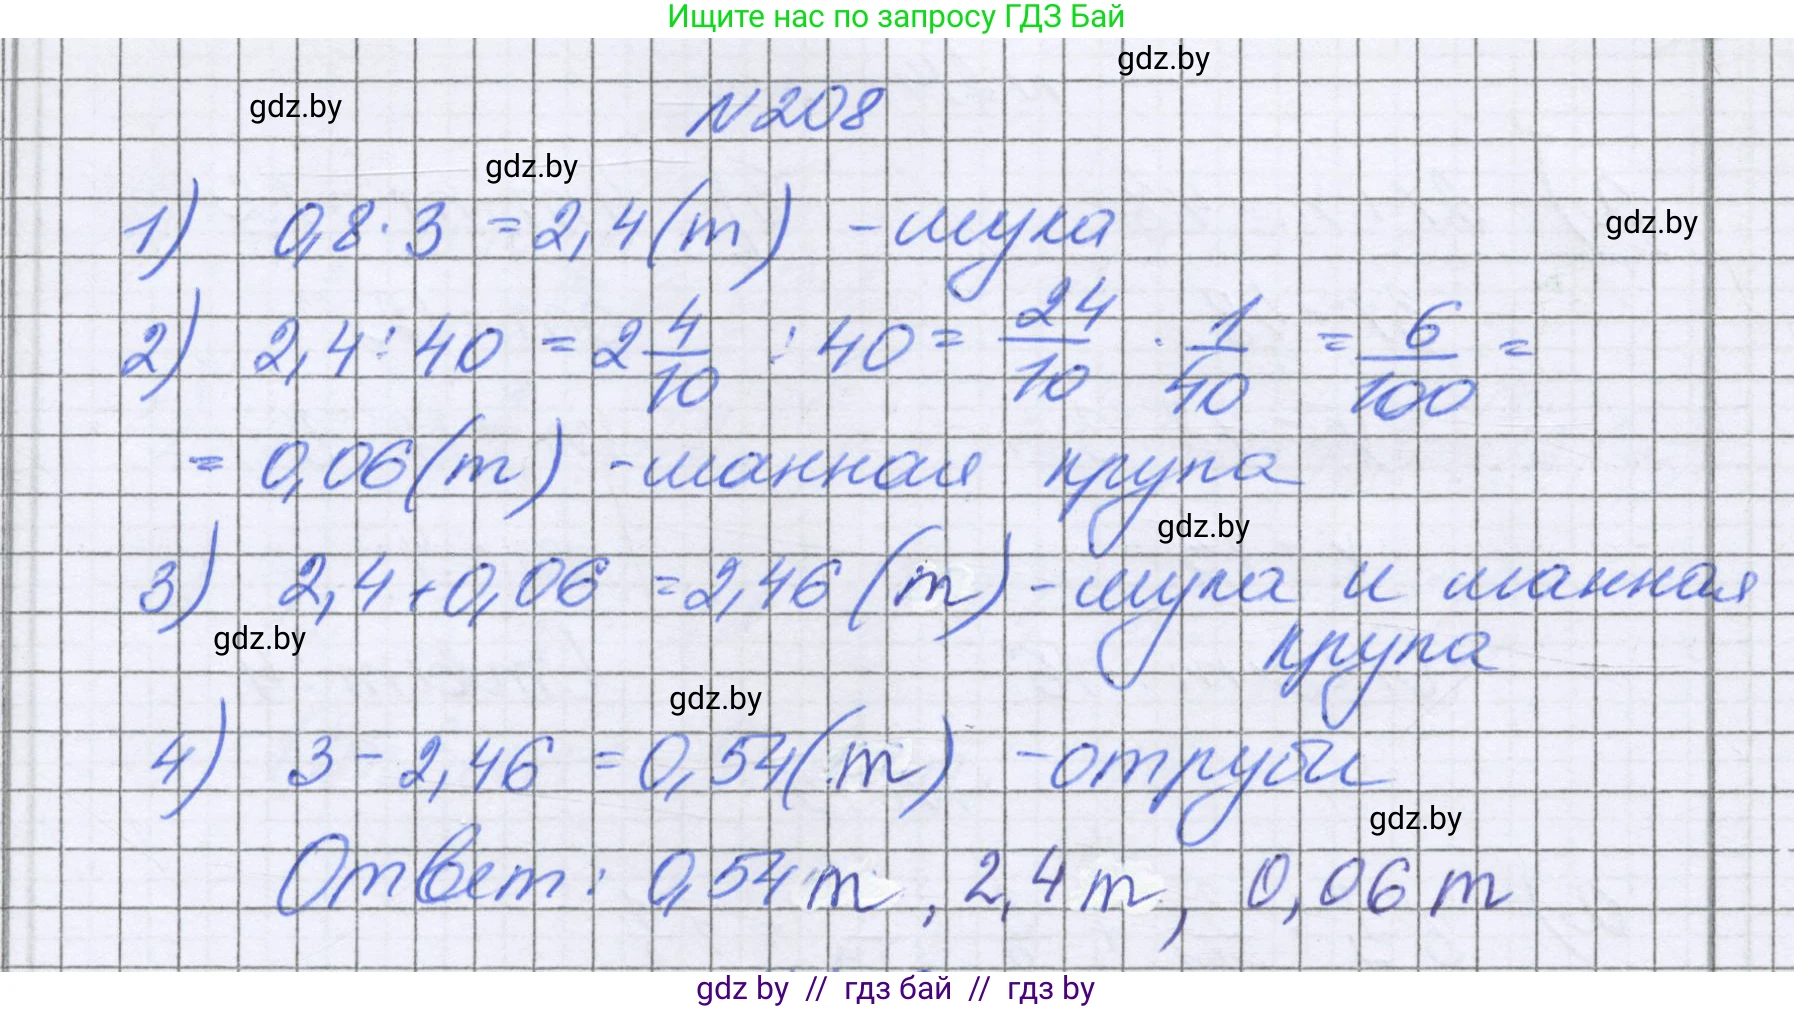 Ищите нас по запросу ГДЗ Бай
gdz.by
gdz.by
N 208
gdz.by
1) 0,8 · 3 = 2,4 (т) - мука
gdz.by
2) 2,4 : 40 = 2 4/10 : 40 = 24/10 · 1/40 = 6/100 =
= 0,06 (т) - манная крупа
gdz.by
3) 2,4 + 0,06 = 2,46 (т) - мука и манная
gdz.by
крупа
gdz.by
4) 3 - 2,46 = 0,54 (т) - отруби
gdz.by
Ответ: 0,54 т, 2,4 т, 0,06 т
gdz by // гдз бай // гдз by